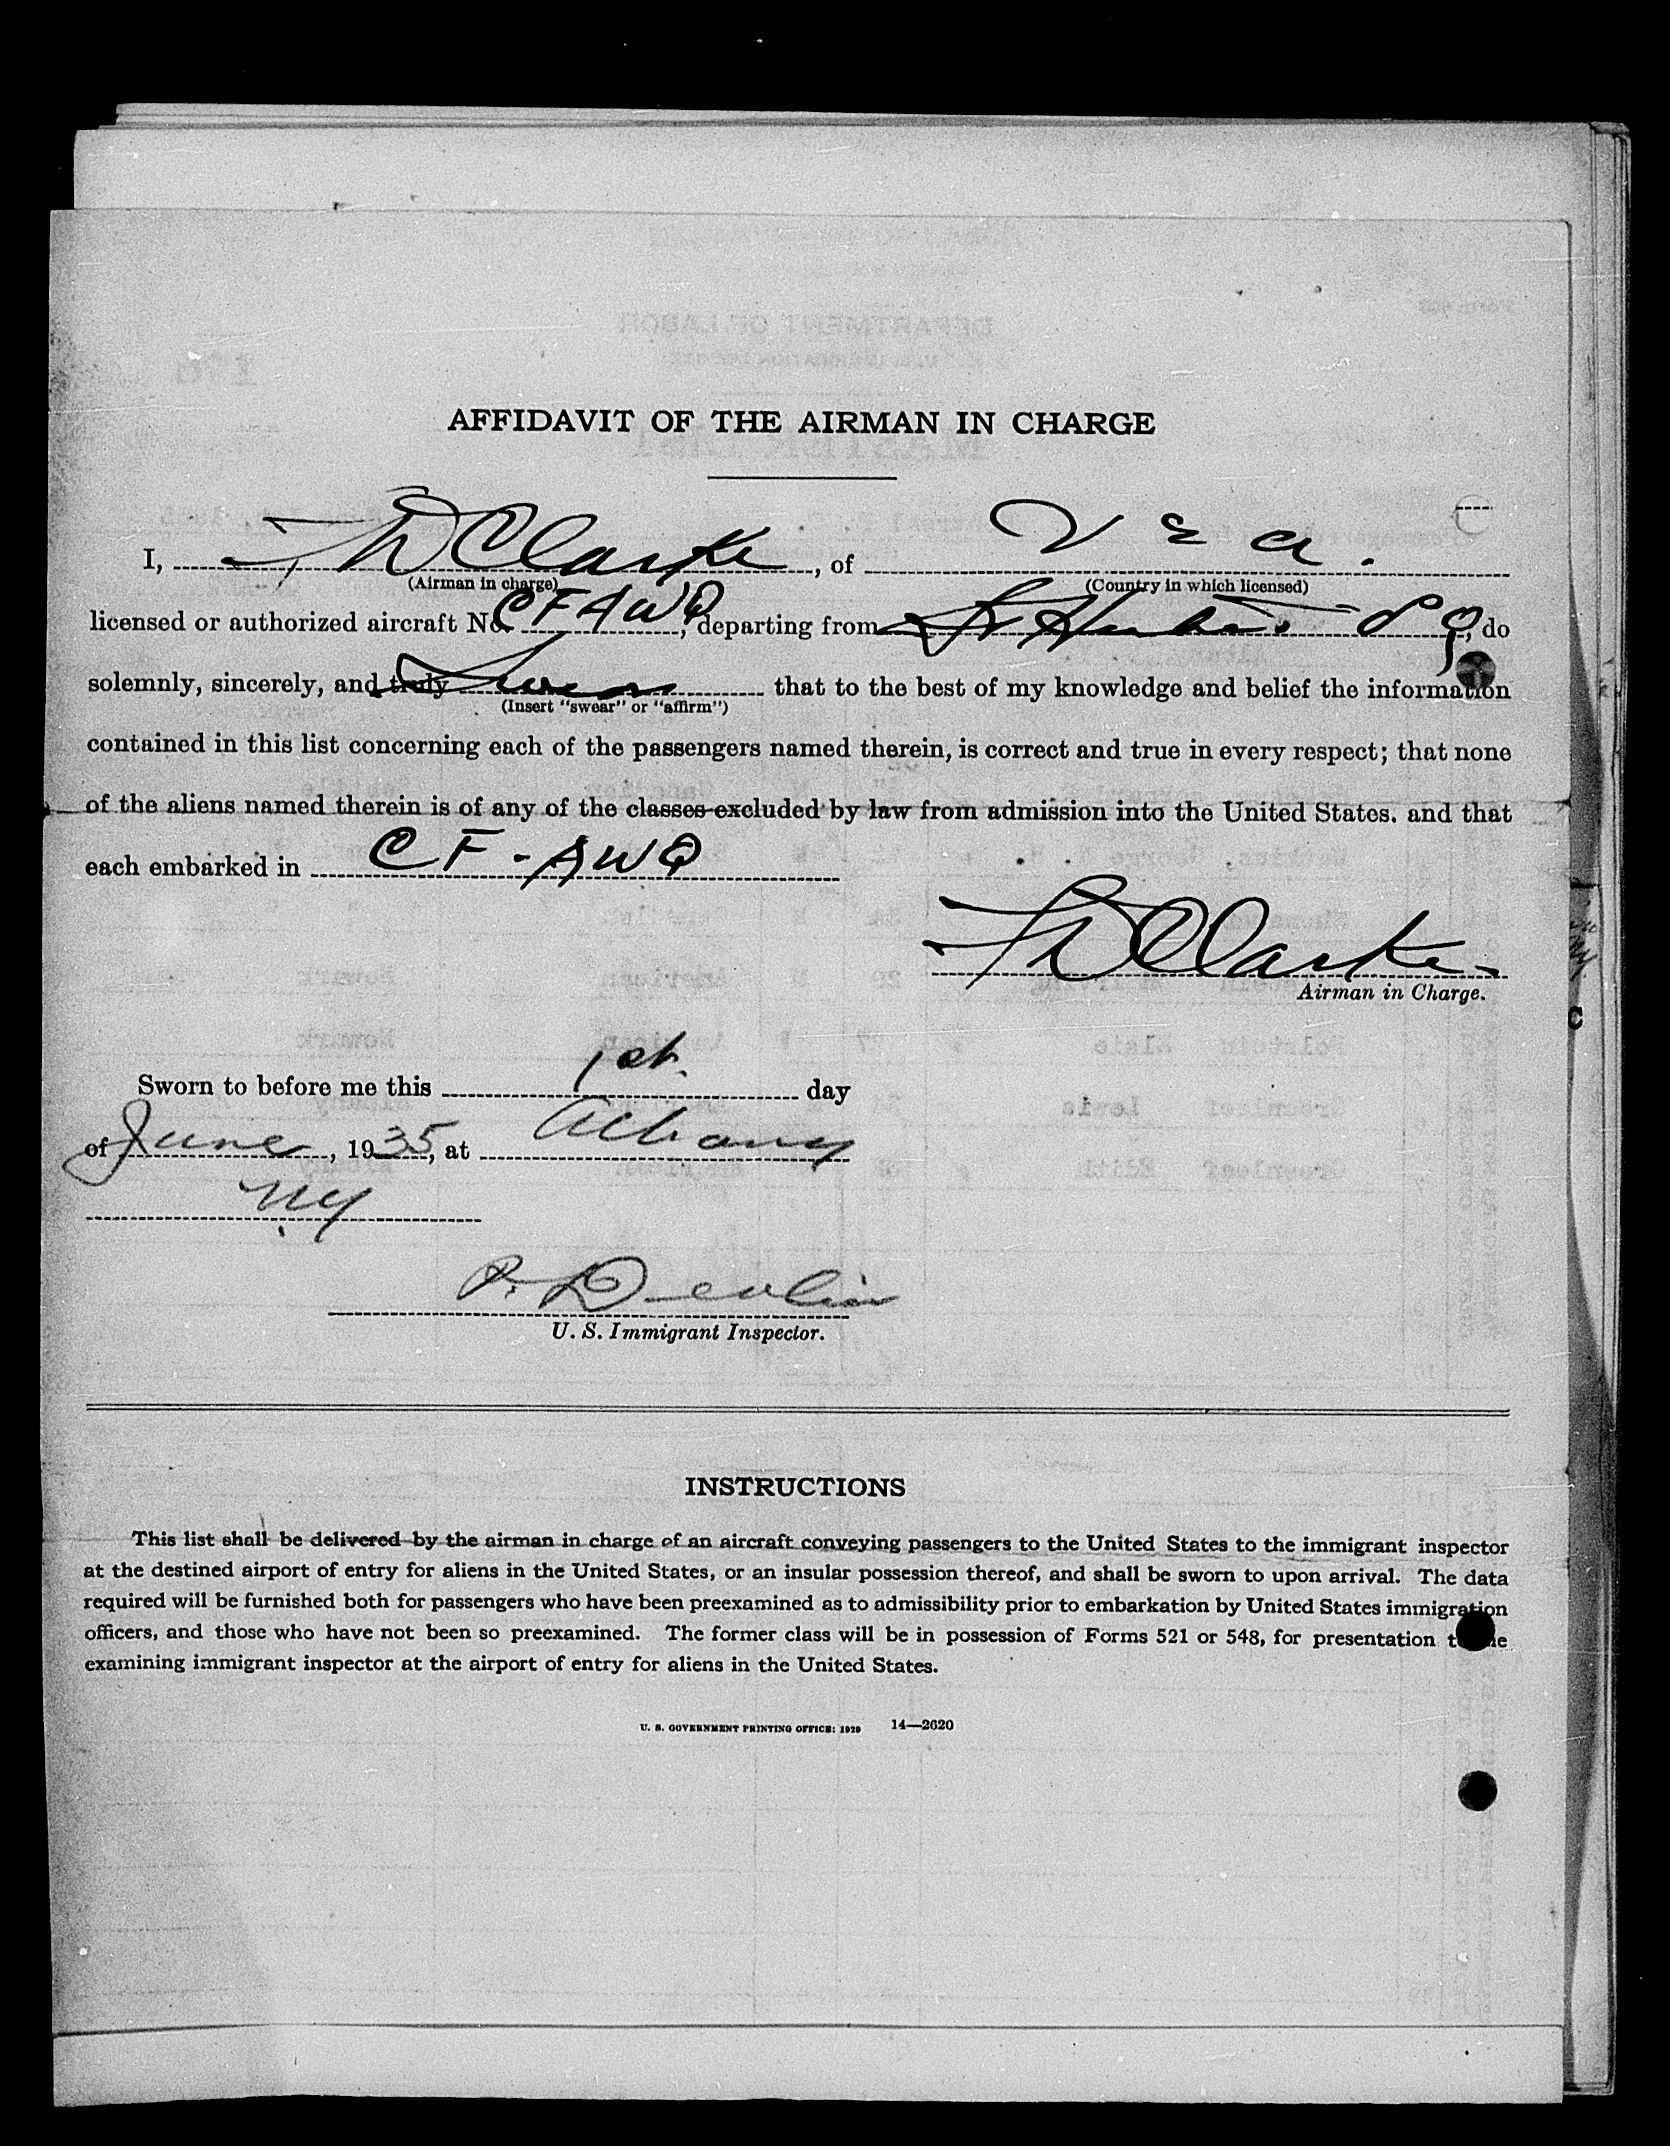 AFFIDAVIT OF THE AIRMAN IN CHARGE
I, Clarke, of U S A.
(Airman in charge) (Country in which licensed)
licensed or authorized aircraft No. CFAWQ, departing from St Hubert P Q, do
solemnly, sincerely, and truly swear that to the best of my knowledge and belief the information
(Insert "swear" or "affirm")
contained in this list concerning each of the passengers named therein, is correct and true in every respect; that none
of the aliens named therein is of any of the classes excluded by law from admission into the United States. and that
each embarked in CF-AWQ
Clarke
Airman in Charge.
Sworn to before me this 1st. day
of June, 1935, at Albany
NY
P. Devlin
U. S. Immigrant Inspector.
INSTRUCTIONS
This list shall be delivered by the airman in charge of an aircraft conveying passengers to the United States to the immigrant inspector
at the destined airport of entry for aliens in the United States, or an insular possession thereof, and shall be sworn to upon arrival. The data
required will be furnished both for passengers who have been preexamined as to admissibility prior to embarkation by United States immigration
officers, and those who have not been so preexamined. The former class will be in possession of Forms 521 or 548, for presentation to the
examining immigrant inspector at the airport of entry for aliens in the United States.
U. S. GOVERNMENT PRINTING OFFICE: 1929 14—2620